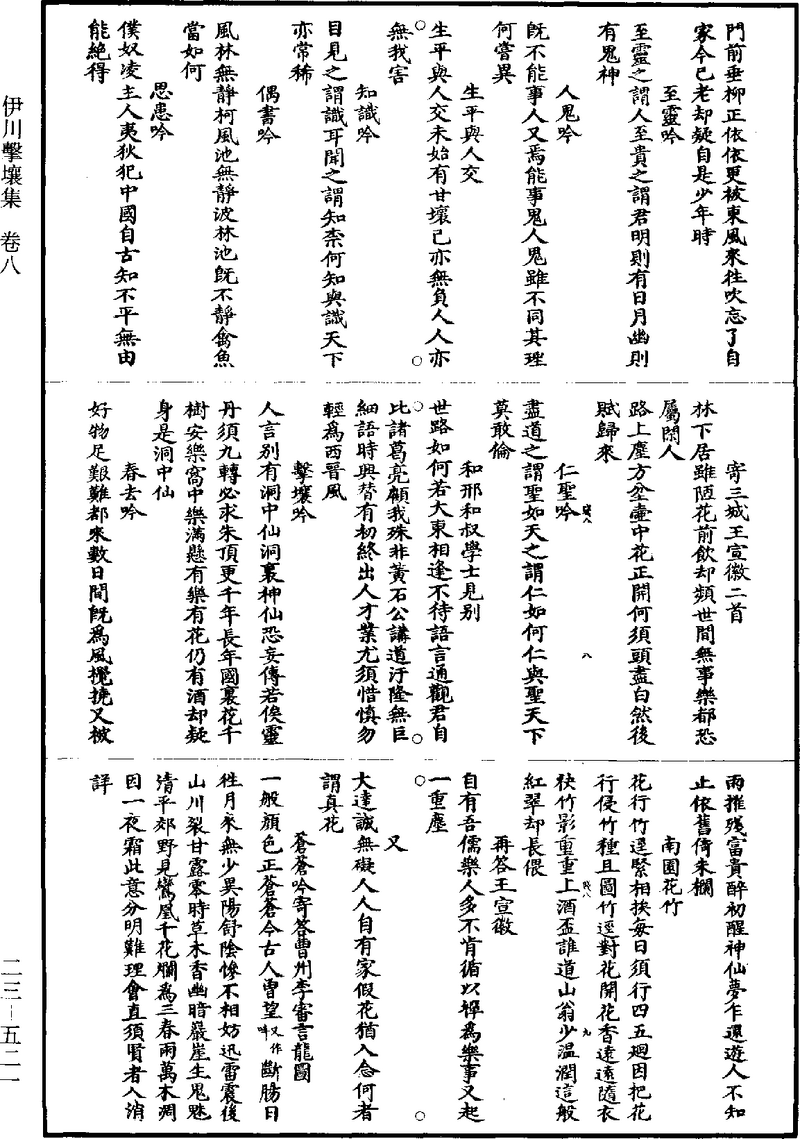 門前垂柳正依依更被東風來往吹忘了自
家今已老却疑自是少年時
至靈吟
至靈之謂人至貴之謂君明則有日月幽則
有鬼神
人鬼吟
既不能事人又焉能事鬼人鬼雖不同其理
何嘗異
生平與人交
生平與人交未始有甘壞己亦無負人人亦
無我害
知識吟
目見之謂識耳聞之謂知柰何知與識天下
亦常稀
偶書吟
風林無靜柯風池無靜波林池既不靜禽魚
當如何
思患吟
僕奴凌主人夷狄犯中國自古知不平無由
能絶得
寄三城王宣徽二首
林下居雖陋花前飲却頻世間無事樂都恐
屬閑人
路上塵方坌壷中花正開何須頭盡白然後
賦歸來
仁聖吟
盡道之謂聖如天之謂仁如何仁與聖天下
莫敢倫
和邢和叔學士見别
世路如何若大東相逢不待語言通觀君自
比諸葛亮顧我殊非黃石公講道汙隆無巨
細語時興替有初終出人才業尤須惜慎勿
輕為西晉風
擊壤吟
人言别有洞中仙洞裏神仙恐妄傳若俟靈
丹須九轉必求朱頂更千年長年國裏花千
樹安樂窩中樂滿懸有樂有花仍有酒却疑
身是洞中仙
春去吟
好物足艱難都來數日間既為風攪挠又被
雨摧殘富貴醉初醒神仙夢乍還遊人不知
止依舊倚朱欄
南園花竹
花行竹逕緊相挨每日須行四五廻因把花
行侵竹種且圖竹逕對花開花香遠遠隨衣
袂竹影重重上酒盃誰道山翁少温潤這般
紅翠却長偎
再答王宣徽
自有吾儒樂人多不肯循以禪為樂事又起
一重塵
又
大達誠無礙人人自有家假花猶入念何者
謂真花
蒼蒼吟寄答曹州李審言龍圖
一般顏色正蒼蒼今古人曾望又作叫斷腸日
徃月來無少異陽舒隂慘不相妨迅雷震後
山川裂甘露零時草木香幽暗巖崖生鬼魅
清平郊野見鸞凰千花爛為三春雨萬木凋
因一夜霜此意分明難理會直須賢者入消
詳
伊川擊壤集 卷八
二三—五二一